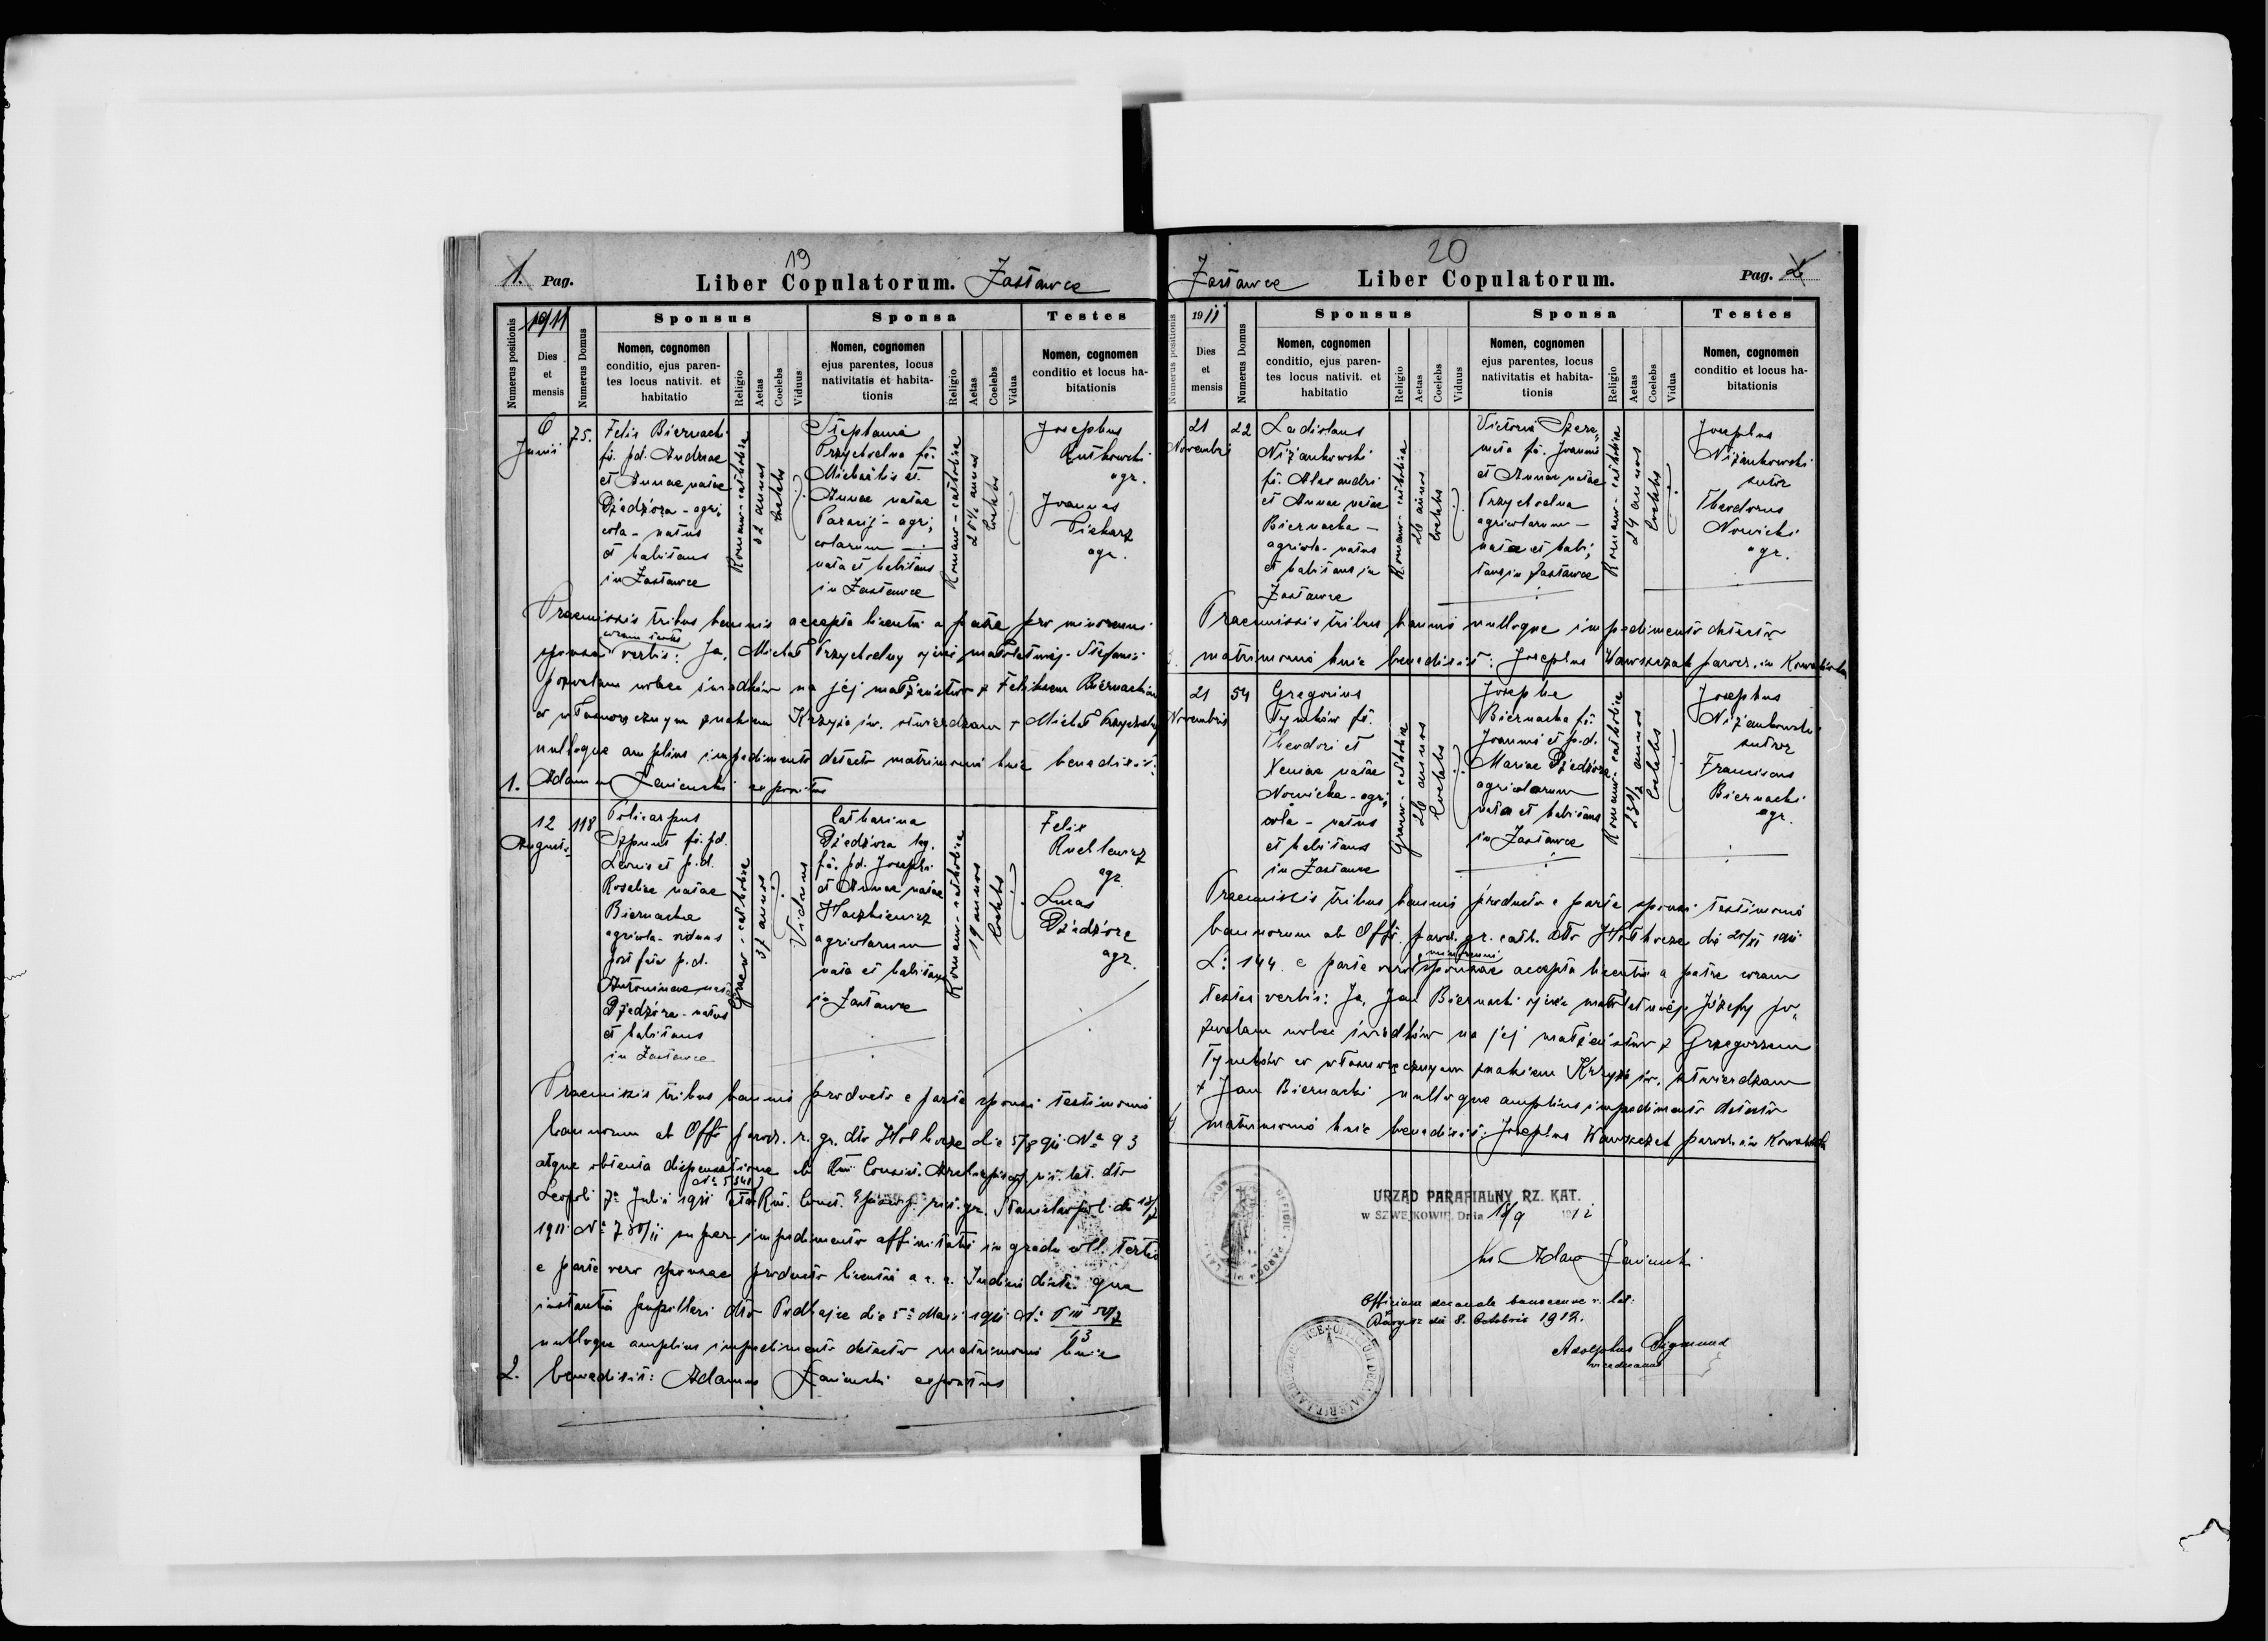 1. Pag.
19
Liber Copulatorum. Zastawce
Numerus positionis
1911
Dies et mensis
Numerus Domus
Sponsus
Nomen, cognomen
conditio, ejus paren-
tes locus nativit. et
habitatio
Religio
Aetas
Coelebs
Viduus
Sponsa
Nomen, cognomen
ejus parentes, locus
nativitatis et habita-
tionis
Religio
Aetas
Coelebs
Vidua
Testes
Nomen, cognomen
conditio et locus ha-
bitationis
6
Junii
75.
Felix Biernacki
fś. pd. Andreae
et Annae natae
Dziedzióra - agri,
cola - natus
et habitans
in Zastawce
Romano-catholica
32 annos
Coelebs
Stephania
Przychodna fś.
Michaëlis et
Annae natae
agri,
colarum
nata et habitans
in Zastawce
Romano-catholica
Coelebs
Josephus
Rutkowski
agr.
Joannes
Piekarz
agr.
Praemissis tribus bannis accepta licentia a patre pro minorenni
sponsa coram testes verbis: Ja, Michał Przychodny ojciec małoletniej Stefanii
pozwalam wobec świadków na jej małżeństwo z Feliksem Biernackim
co własnoręcznym znakiem Krzyża św. stwierdzam + Michał Przychodny
nulloque amplius impedimento detecto matrimonio huic benedixit:
1. Adamus expositus
12
Augusti
118
Policarpus
Szpunt fś. pd.
Leonis et p.d.
Roseliae natae
Biernacka
agricola - viduus
post fata p.d.
Antoninae natae
Dziedzióra - natus
et habitans
in Zastawce
Graeco-catholica
37 annos
Viduus
Catharina
Dziedzióra leg.
fś. pd. Josephi
et Annae natae
Haszkiewicz
agricolarum
nata et habitans
in Zastawce
Romano-catholica
19 annos
Coelebs
Felix
Ruchlewicz
agr.
Lucas
Dziedzióra
agr.
Praemissis tribus bannis producto e parte sponsi testimonio
bannorum ab Offo paroch. r. gr. dto Hołhocze die 5/8 911 No 93
atque obtenta dispensatione ab Rmi Consist. Archiepiscop. rit. lat. dto
Leopoli 7a Julii 1911 No 5341 et ab Rmi. Const. Episcop. rit. gr. Stanislaopol. dto 18/7
1911 No super impedimento affinitatis in gradu coll. tertio
e parte vero sponsae producto licentia a c. r. Judicii distr. qua
instantia pupillari dto Podhajce die 5a Maii 1911 No P III 50/7
63
nulloque amplius impedimento detecto matrimonio huic
2. benedixit: Adamus expositus
Zastawce
20
Liber Copulatorum.
Pag. 2
Numerus positionis
1911
Dies et mensis
Numerus Domus
Sponsus
Nomen, cognomen
conditio, ejus paren-
tes locus nativit. et
habitatio
Religio
Aetas
Coelebs
Viduus
Sponsa
Nomen, cognomen
ejus parentes, locus
nativitatis et habita-
tionis
Religio
Aetas
Coelebs
Vidua
Testes
Nomen, cognomen
conditio et locus ha-
bitationis
21
Novembris
22
Ladislaus
Niżankowski
fś. Alexandri
et Annae natae
Biernacka -
agricola - natus
et habitans in
Zastawce
Romano-catholica
26 annos
Coelebs
Victoria Szere,
meta fś. Joannis
et Annae natae
Przychodna
agricolarum -
nata et habi,
tans in Zastawce
Romano-catholica
24 annos
Coelebs
Josephus
Niżankowski
sutor
Theodorus
Nowicki
agr.
Praemissis tribus bannis nulloque impedimento detecto
3. matrimonio huic benedixit: Josephus Wawszczak paroch. in
21
Novembris
54
Gregorius
Tymków fś.
Theodori et
Xeniae natae
Nowicka - agri,
cola - natus
et habitans
in Zastawce
Graeco-catholica
26 annos
Coelebs
Josepha
Biernacka fś.
Joannis et p.d.
Mariae Dziedzióra
agricolarum
nata et habitans
in Zastawce
Romano-catholica
23½ annos
Coelebs
Josephus
Niżankowski
sutor
Franciscus
Biernacki
agr.
Praemissis tribus bannis producto e parte sponsi testimonio
bannorum ab Offo. paroch. gr. cath. dto Hołhocze die 20/XI 1911
L: 144 e parte vero minorenni sponsae accepta licentia a patre coram
testes verbis: Ja, Jan Biernacki ojciec małoletniej Józefy po,
zwalam wobec świadków na jej małżeństwo z Grzegorzem
Tymków co własnoręcznym znakiem Krzyża św. stwierdzam
+ Jan Biernacki nulloque amplius impedimento detecto
4. matrimonio huic benedixit: Josephus Wawszczak paroch. in
URZĄD PARAFIALNY RZ. KAT.
w SZWEJKOWIE, Dnia 18/9 1912
ks Adam
Officium decanale r. lat:
die 8. Octobris 1912.
Adolphus Sigmund
vicedecanus